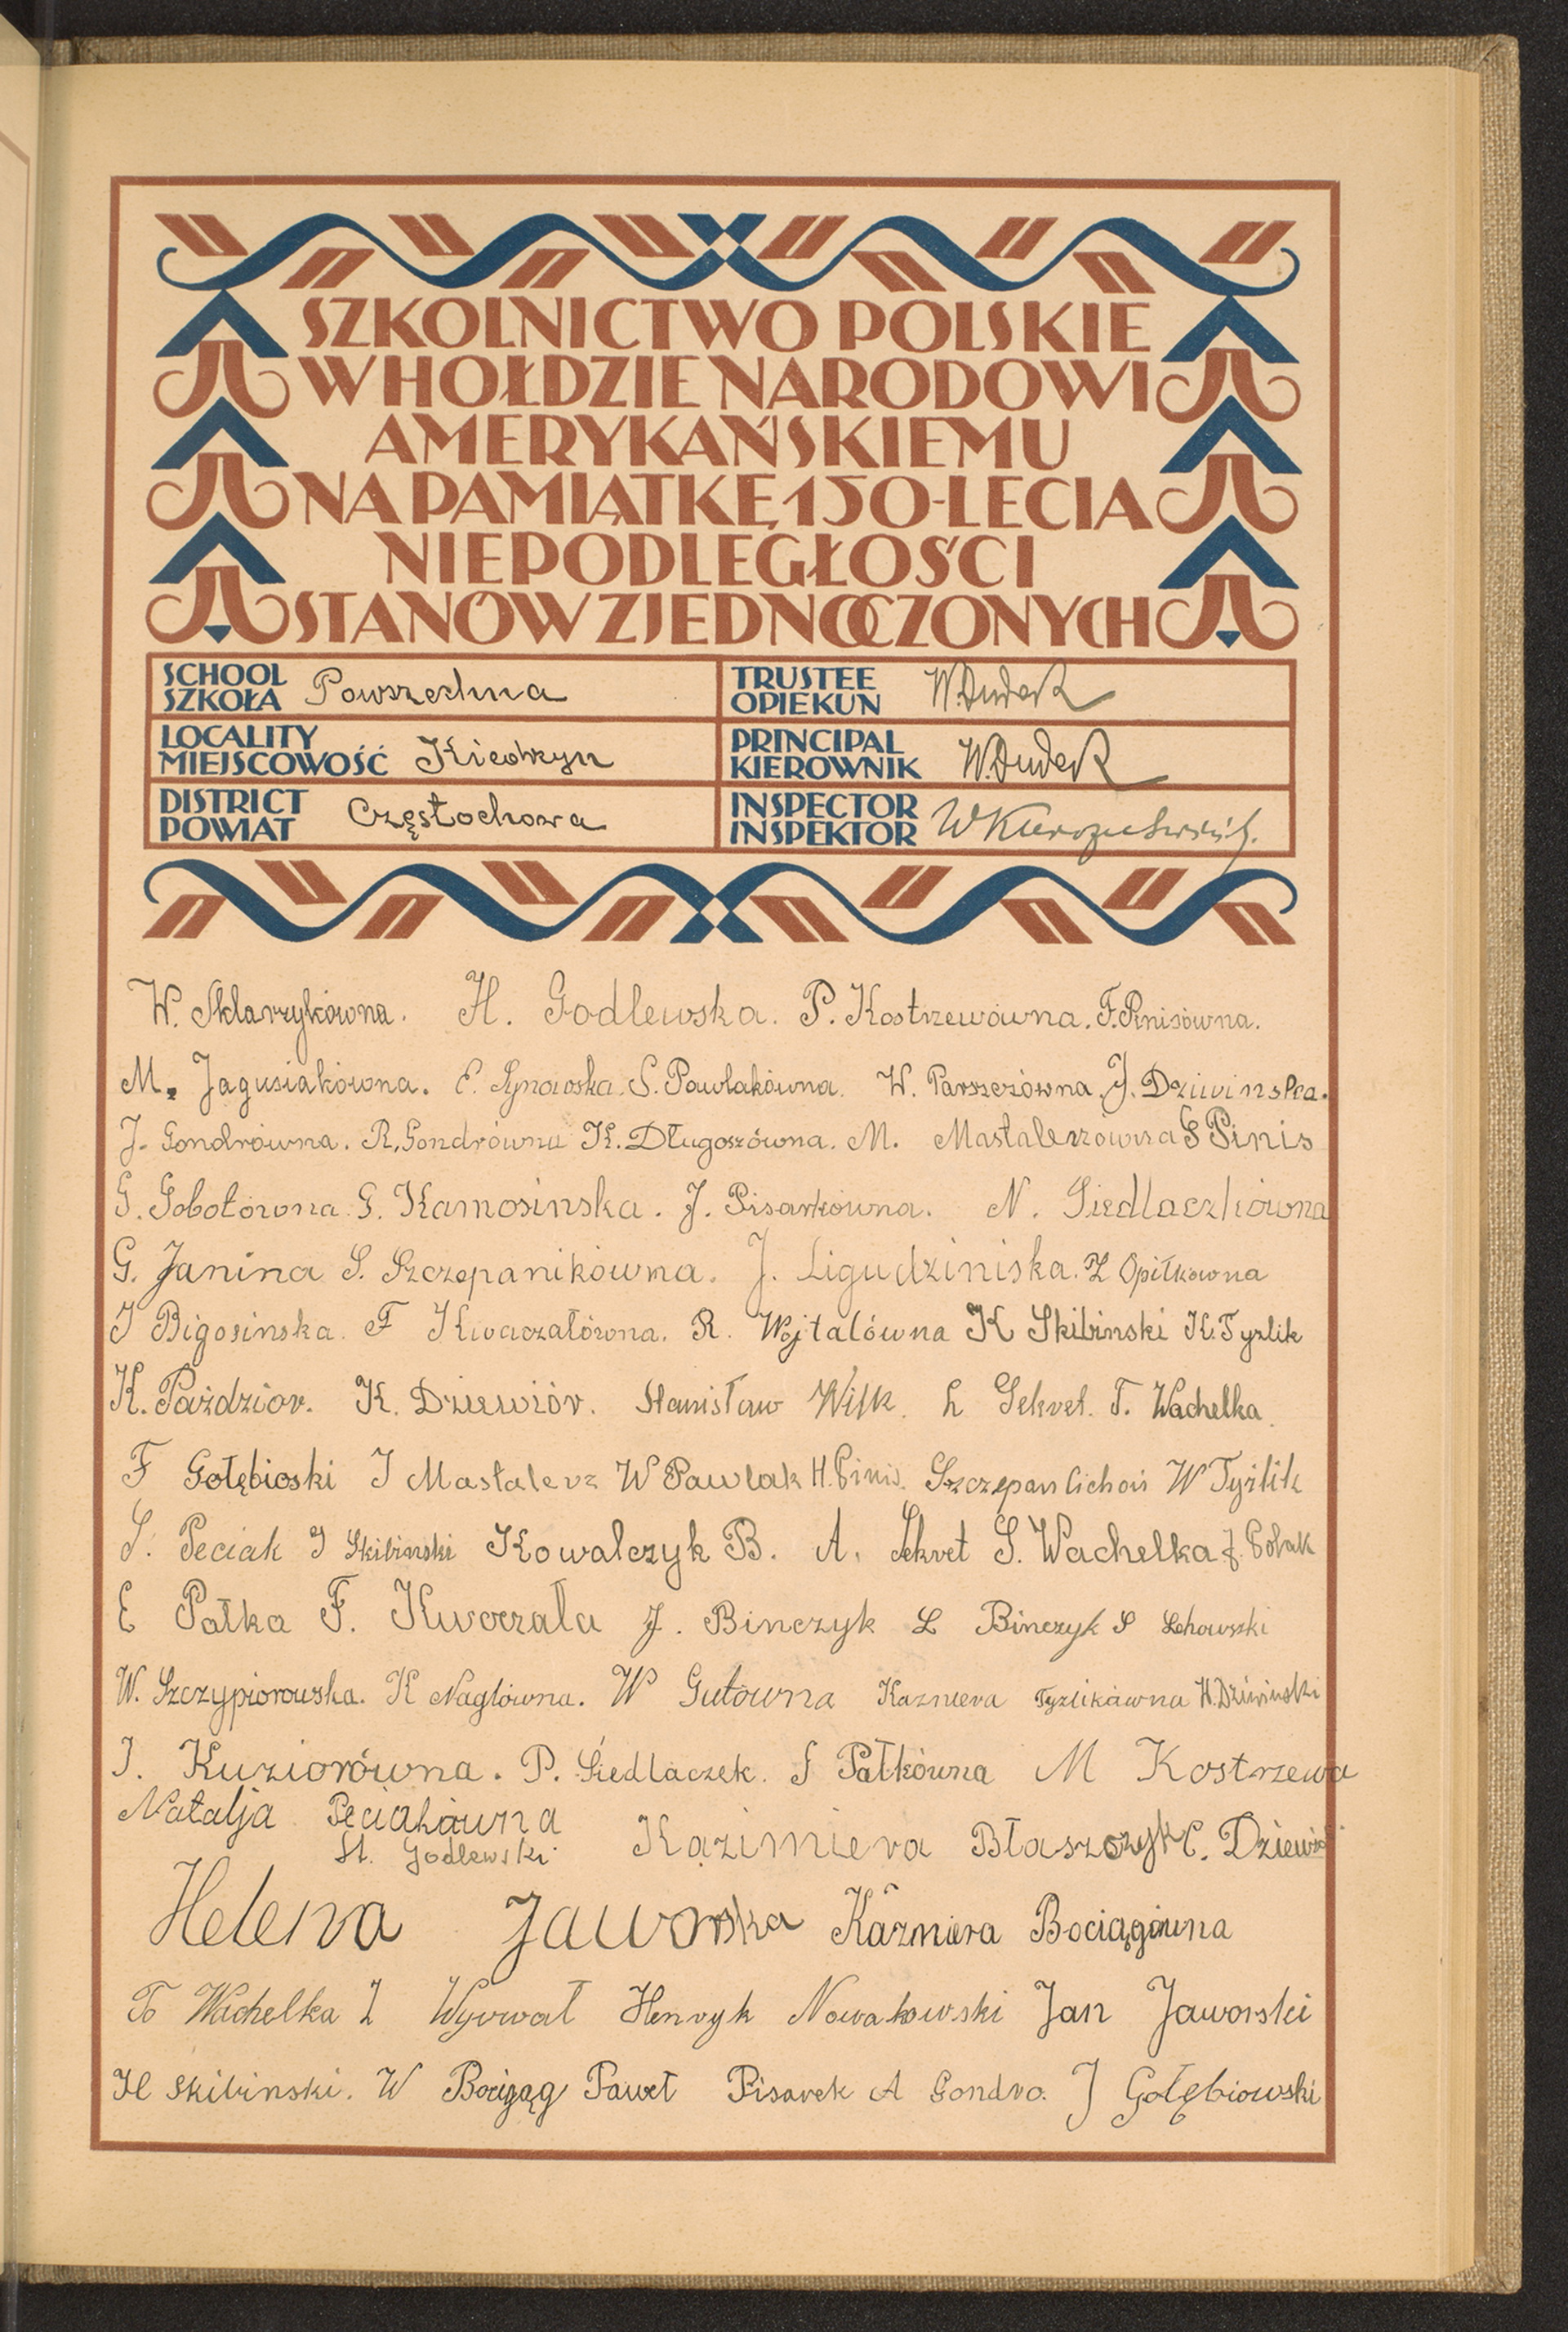 SZKOLNICTWO POLSKIE
W HOŁDZIE NARODOWI
AMERYKAŃSKIEMU
NA PAMIĄTKĘ 150-LECIA
NIEPODLEGŁOŚCI
STANÓW ZJEDNOCZONYCH
SCHOOL
SZKOŁA Powszechna
TRUSTEE
OPIEKUN W. Dudek
LOCALITY
MIEJSCOWOŚĆ Kiedrzyn
PRINCIPAL
KIEROWNIK W. Dudek
DISTRICT
POWIAT Częstochowa
INSPECTOR
INSPEKTOR
W. Sklarzykówna. H. Godlewska. P. Kostrzewówna. F. Pinisówna.
M. Jagusiakówna. E. Rynowska. S. Pawlakówna. W. Parszczówna. J. Dziwinska.
J. Gondrówna. R. Gondrówna K. Długoszówna. M. Mastalerzówna S Pinis
G. Sobotówna G. Kamosinska. J. Pisarkówna. N. Siedlaczkówna
G. Janina S. Szczepanikówna. J. Ligudziniska. Z Opiłkowna
J Bigosinska. F Kwaczałówna. R. Wojtalówna K Skibinski K. Tyzlik
K. Paździor. K. Dziewiór. Stanisław Wilk. L Sekret. T. Wachelka.
F Gołębioski J Mastalerz W Pawlak H. Pinis. Szczepan Cichoń W Tyźlik
S. Peciak J Skibinski Kowalczyk B. A. Sekret S. Wachelka J. Polak
E Pałka F. Kwoczała J. Binczyk L Binczyk S Lehowski
W. Szczypiorowska. K Naglówna. W Gutówna Kazmiera Tyzlikówna H. Dziwinski
J. Kuziorówna. P. Siedlaczek. S Pałkówna M Kostrzewa
Natalja Peciakówna
St. Godlewski Kazimiera Błaszczyk C. Dziewiór
Helena Jaworska Kazmiera Bociągówna
To Wachelka Z Wyrwał Henryk Nowakowski Jan Jaworski
H Skibinski. W Bociąg Paweł Pisarek A Gondro. J Gołębiowski